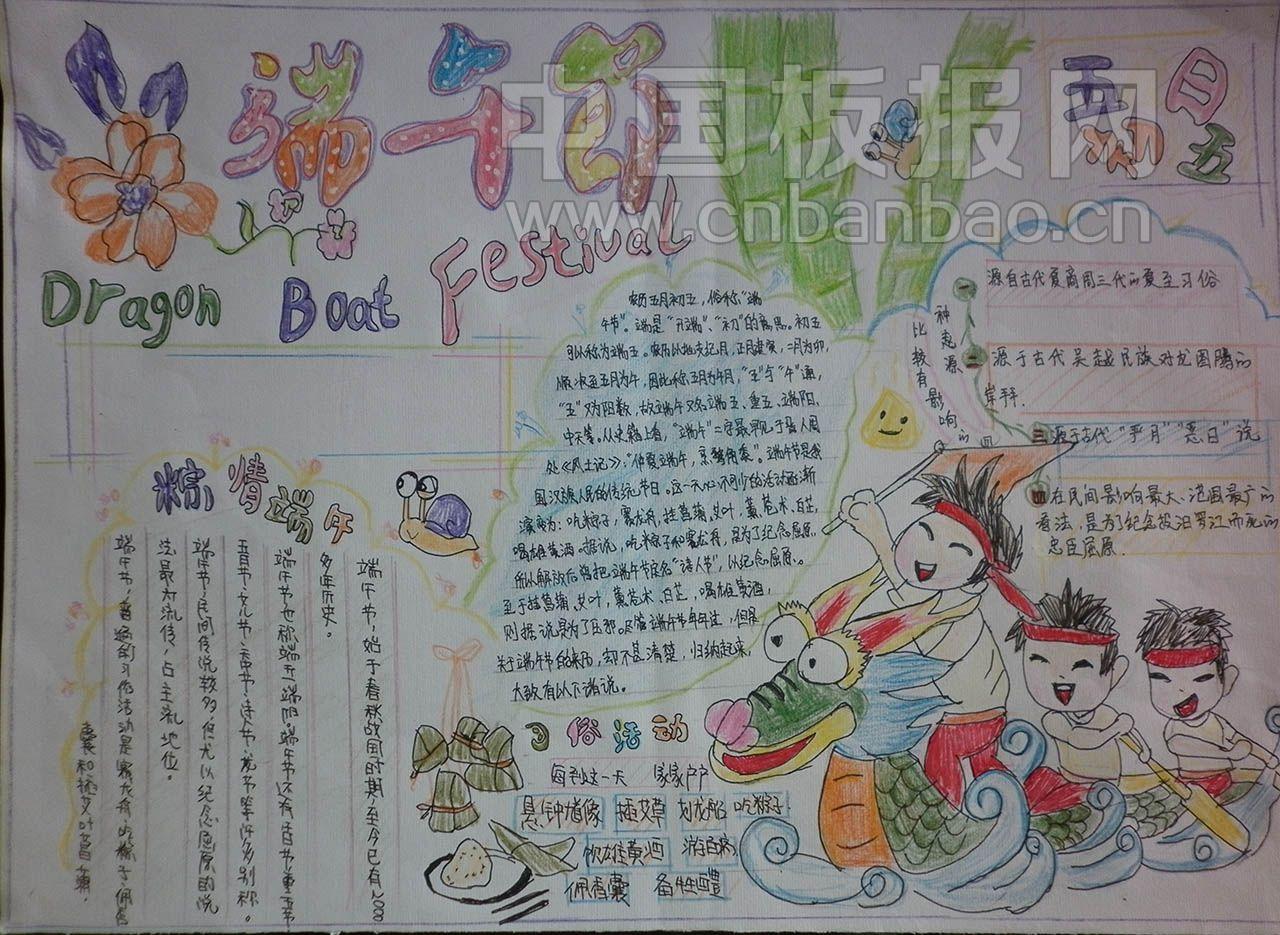 端午节
Dragon Boat Festival
中国板报网
www.cnbanbao.cn
五月
初五
农历五月初五,俗称“端
午节”。端是“开端”、“初”的意思。初五
可以称为端五。农历以地支纪月,正月建寅,二月为卯,
顺次至五月为午,因此称五月为午月,“五”与“午”通,
“五”又为阳数,故端午又名端五、重五、端阳、
中天等。从史籍上看,“端午”二字最早见于晋人周
处《风土记》:“仲夏端午,烹鹜角黍”。端午节是我
国汉族人民的传统节日。这一天必不可少的活动逐渐
演变为:吃粽子,赛龙舟,挂菖蒲、艾叶,薰苍术、白芷,
喝雄黄酒。据说,吃粽子和赛龙舟,是为了纪念屈原,
所以解放后曾把端午节定名“诗人节”,以纪念屈原。
至于挂菖蒲、艾叶,薰苍术、白芷,喝雄黄酒,
则据说是为了压邪。尽管端午节年年过,但是
关于端午节的来历,却不甚清楚,归纳起来,
大致有以下诸说。
比较有影响的
四
种起源
一 源自古代夏商周三代的夏至习俗
二 源于古代吴越民族对龙图腾的
三 源于古代“恶日”说
四 在民间影响最大、范围最广的
看法,是为了纪念投汨罗江而死的
忠臣屈原.
粽情端午
端午节,始于春秋战国时期,至今已有2000
多年历史。
端午节也称端五,端阳。端午节还有午日节、重五节
五月节、女儿节、天中节、诗人节、龙节等许多别称。
端午节,民间传说较多,但尤以纪念屈原的说
法最为流传,占主流地位。
端午节,普遍的习俗活动是赛龙舟、吃粽子、佩香
囊和插艾叶菖蒲.
习俗活动
每到这一天 家家户户
悬钟馗像 插艾草 划龙船 吃粽子
饮雄黄酒 游百病
佩香囊 备牲醴